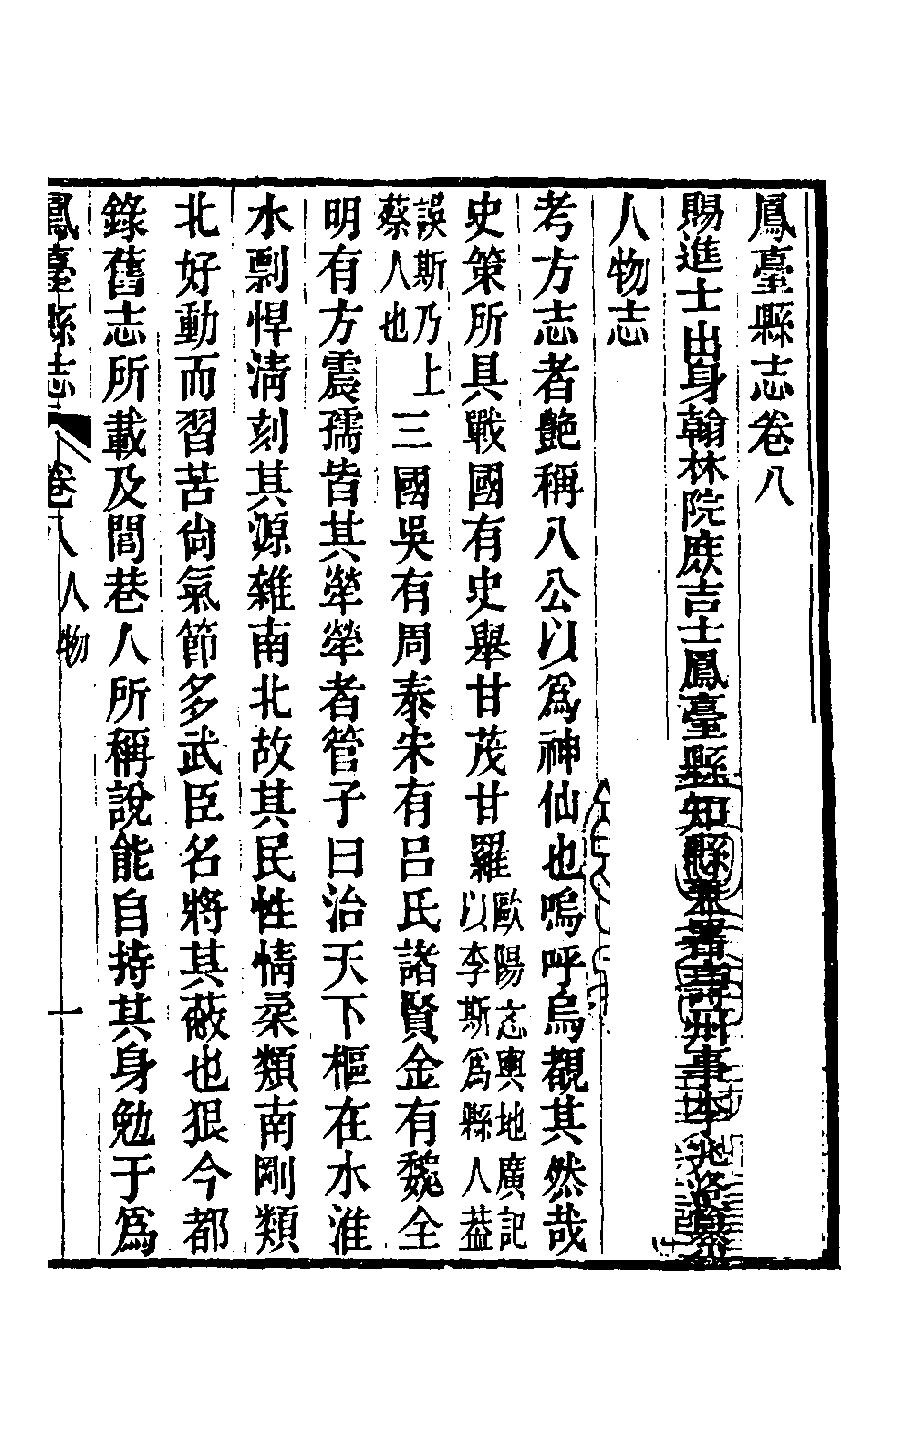 鳳臺縣志卷八
賜進士出身翰林院庶吉士鳳臺縣知縣兼署壽州事李兆洛纂
人物志
考方志者艷稱八公以爲神仙也嗚呼烏覩其然哉
史策所具戰國有史舉甘茂甘羅歐陽忞輿地廣記以李斯爲縣人葢
誤斯乃上蔡人也三國吳有周泰宋有呂氏諸賢金有魏全
明有方震孺皆其犖犖者管子曰治天下樞在水淮
水剽悍淸刻其源雜南北故其民性情柔類南剛類
北好動而習苦尙氣節多武臣名將其蔽也狠今都
錄舊志所載及閭巷人所稱說能自持其身勉于爲
鳳臺縣志 卷八 人物 一